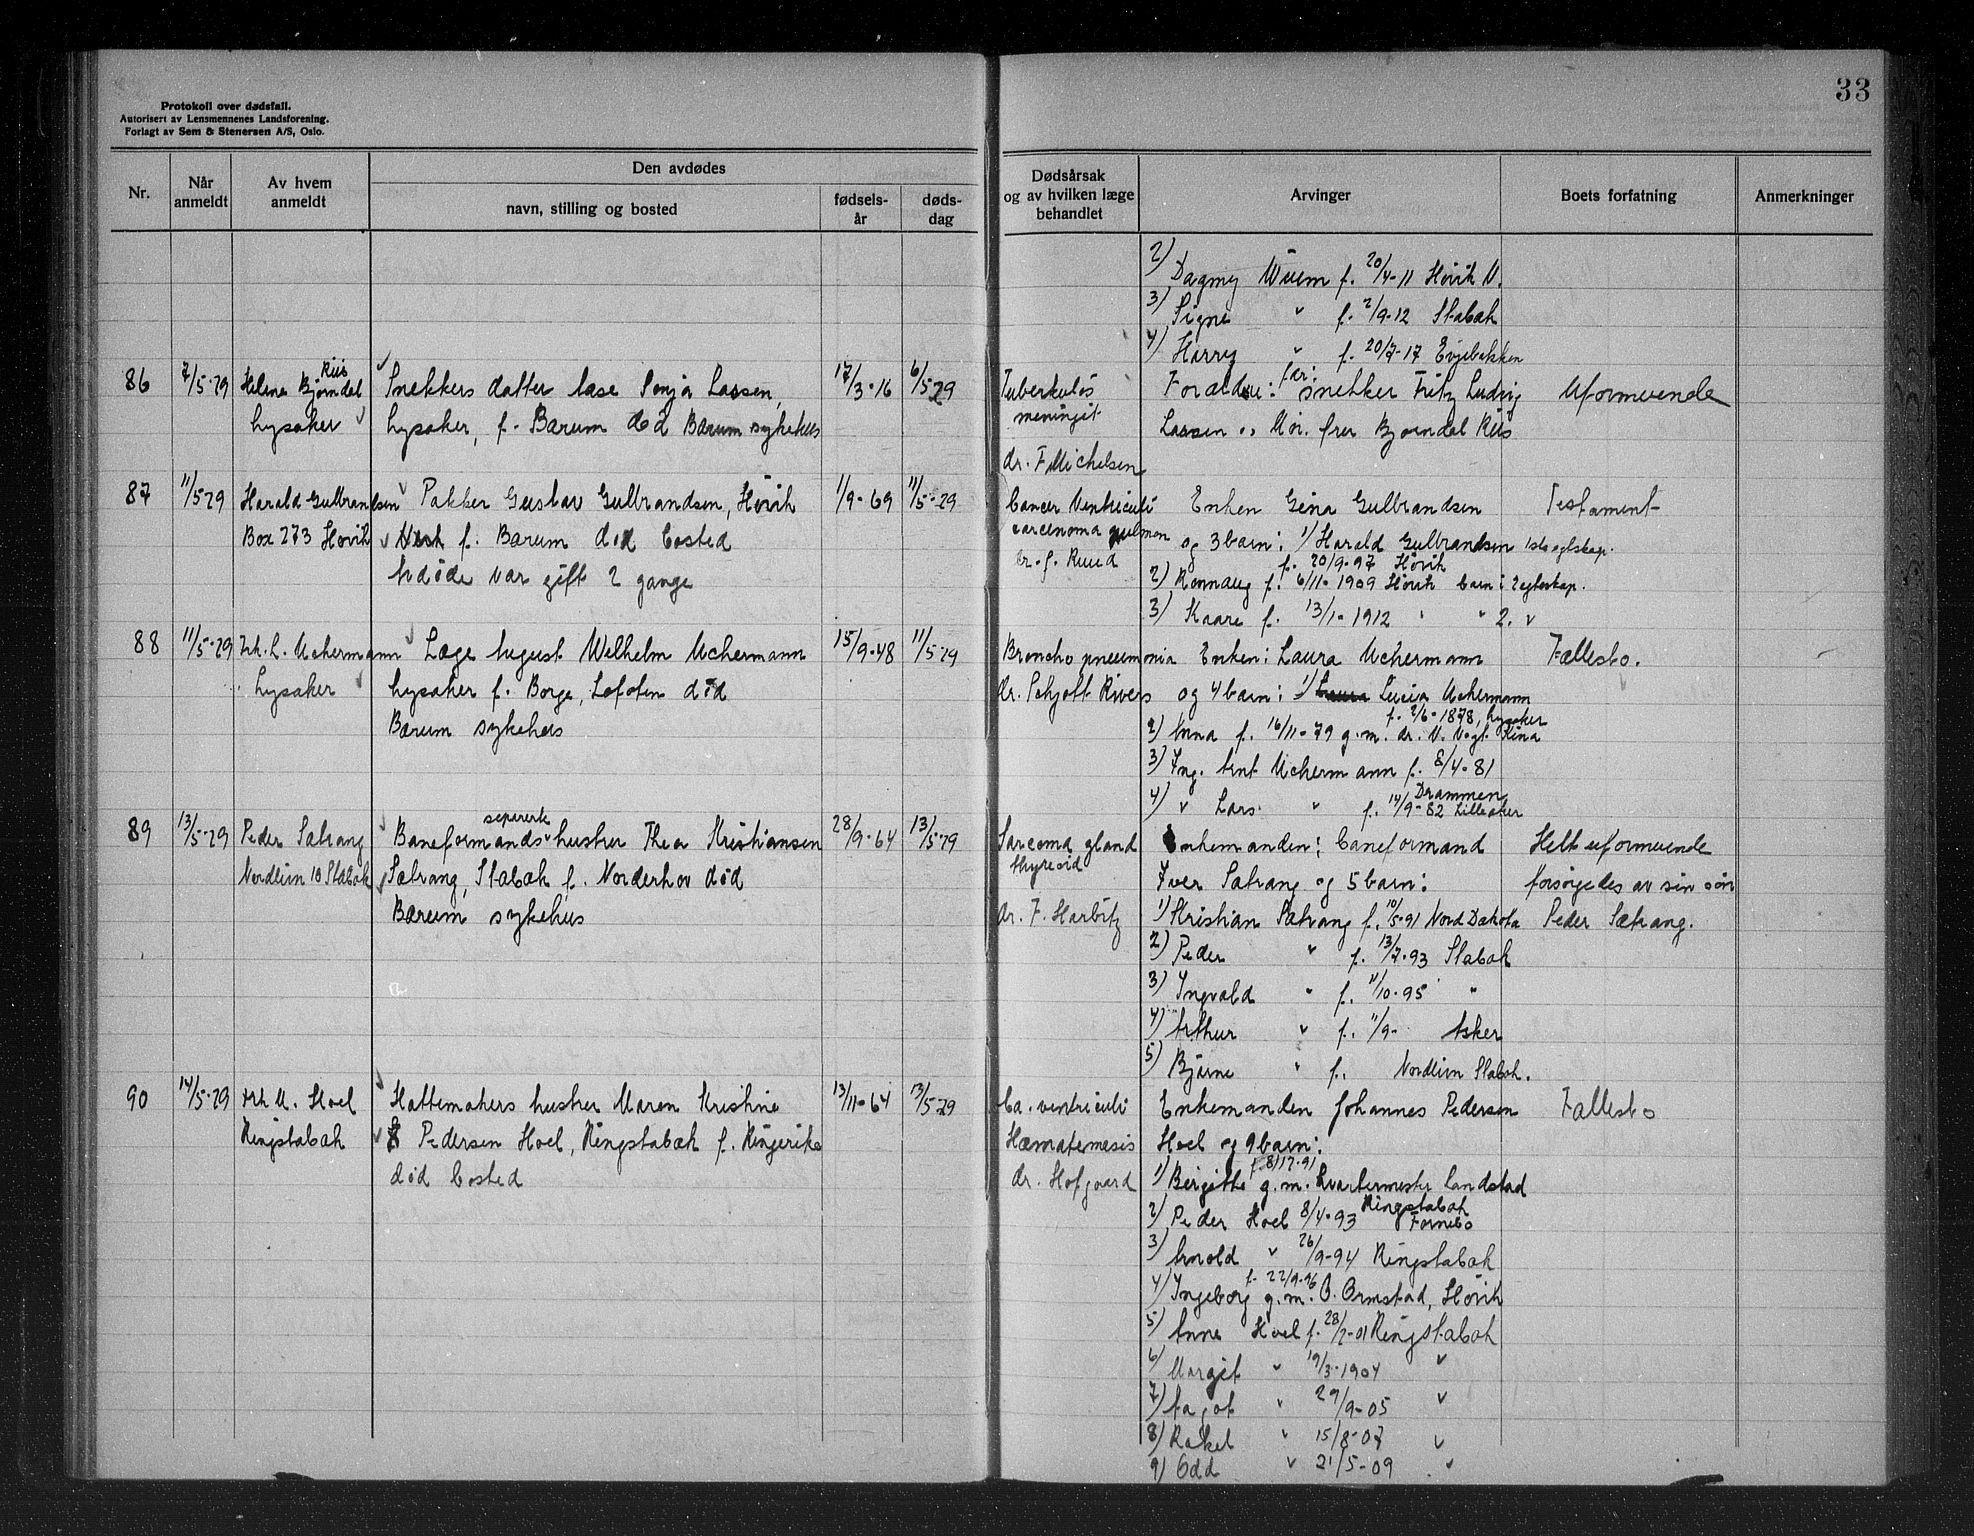 33
Protokoll over dødsfall.
Autorisert av Lensmennenes Landsforening.
Forlagt av Sem & Stenersen A/S, Oslo.
Nr.
Når anmeldt
Av hvem anmeldt
Den avdødes
navn, stilling og bosted
fødsels-år
døds-dag
Dødsårsak og av hvilken læge behandlet
Arvinger
Boets forfatning
Anmerkninger
2) Dagmy Wiiem f. 20/4-11 Høvik V.
3) Signe " f. 2/9-12 Stabæk
4) Harry " f. 20/7-17 Evjebakken
86
7/5-29
Helene Bjørndal Riis
Lysaker
Snekkers datter Aase Sonja Lassen,
Lysaker, f. Bærum død Bærum sykehus
17/3-16
6/5-29
Tuberkuløs
meningit
dr. F Michelsen
Forældre: far: snekker Fritz Ludvig
Lassen og Mor. frue Bjørndal Riis
Uformuende
87
11/5-29
Harald Gulbrandsen
Box 273 Høvik
Pakker Gustav Gulbrandsen, Høvik
Verk f. Bærum død bosted
Avdøde var gift 2 gange
1/9-69
11/5-29
Cancer Ventriculi
carcenoma pulmon
dr. J. Ruud
Enken Gina Gulbrandsen
og 3 barn: 1) Harald Gulbrandsen 1ste egtskap.
f. 20/9-97 Høvik
2) Rønnaug f. 6/11-1909 Høvik barn i 2 egteskap.
3) Kaare f. 13/1-1912 " " 2. "
Testament
88
11/5-29
Frk. L. Uchermann
Lysaker
Læge August Wilhelm Uchermann
Lysaker f. Borge, Lofoten død
Bærum sykehus
15/9-48
11/5-29
Broncho pneumonia
dr. Schjøtt Rivers
Enken: Laura Uchermann
og 4 barn: 1) Laura Lucia Uchermann
f. 2/6-1878, Lysaker
2) Anna f. 16/11-79 g.m. dr. V. Vogt Kina
3) Ing. Arnt Uchermann f. 8/4-81
Drammen
4) " Lars " f. 14/9-82 Lilleaker
Fællesbo.
89
13/5-29
Peder Sætrang
Nordlivn 10 Stabæk
Baneformands separerte hustru Thea Kristiansen
Sætrang, Stabæk f. Norderhov død
Bærum sykehus
28/9-64
13/5-29
Sarcoma gland
thyreoid
dr. F. Harbitz
Enkemanden: baneformand
Iver Sætrang og 5 barn:
1) Kristian Sætrang f. 10/5-91 Nord Dakota
2) Peder " f. 13/7-93 Stabæk
3) Ingvald " f. 11/10-95 "
4) Arthur " f. 11/9- Asker
5) Bjarne " f. Nordlivn Stabæk.
Helt uformuende
forsørgedes av sin søn
Peder Sætrang.
90
14/5-29
Ark M. Hoel
Ringstabæk
Hattemakers hustru Maren Kristine
Pedersen Hoel, Ringstabæk f. Ringerike
død bosted
13/11-64
13/5-29
Ca. ventriculi
Hæmatemesis
dr. Hofgaard
Enkemanden Johannes Pedersen
Hoel og 9 barn:
1) Bergitte f. 8/12-91 g.m. kvartermester Landstad
Ringstabæk
2) Peder Hoel 8/4-93 Fornebo
3) Arnold " 26/9-94 Ringstabæk
4) Ingeborg f. 22/9-96 g.m. O. Ormstad, Høvik
5) Anne Hoel f. 28/2-01 Ringstabæk
6) Margit " 19/3-1904 "
7) Aagot " 29/9-05 "
8) Rakel " 15/8-07 "
9) Odd " 21/5-09 "
Fællesbo